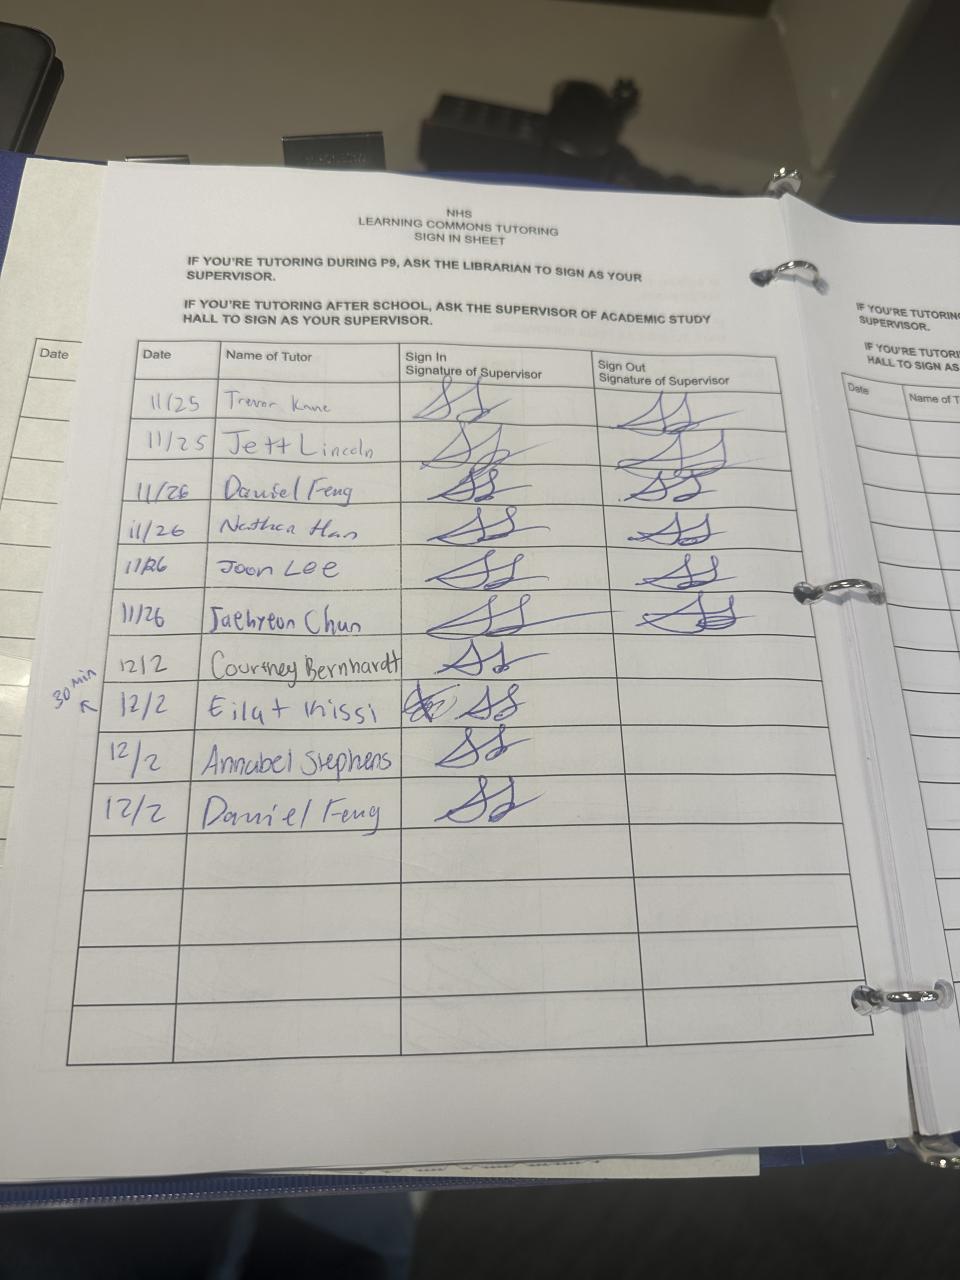 NHS
LEARNING COMMONS TUTORING
SIGN IN SHEET
IF YOU'RE TUTORING DURING P9, ASK THE LIBRARIAN TO SIGN AS YOUR
SUPERVISOR.
IF YOU'RE TUTORING AFTER SCHOOL, ASK THE SUPERVISOR OF ACADEMIC STUDY
HALL TO SIGN AS YOUR SUPERVISOR.
Date Name of Tutor Sign In Signature of Supervisor Sign Out Signature of Supervisor
11/25 Trevor Kane
11/25 Jett Lincoln
11/26 Daniel Feng
11/26 Nathan Han
11/26 Joon Lee
11/26 Jaehyeon Chun
12/2 Courtney Bernhardt
30 min
12/2 Eilat Kissi
12/2 Annabel Stephens
12/2 Daniel Feng
Date
IF YOU'RE TUTORING
SUPERVISOR.
IF YOU'RE TUTORI
HALL TO SIGN AS
Date Name of T